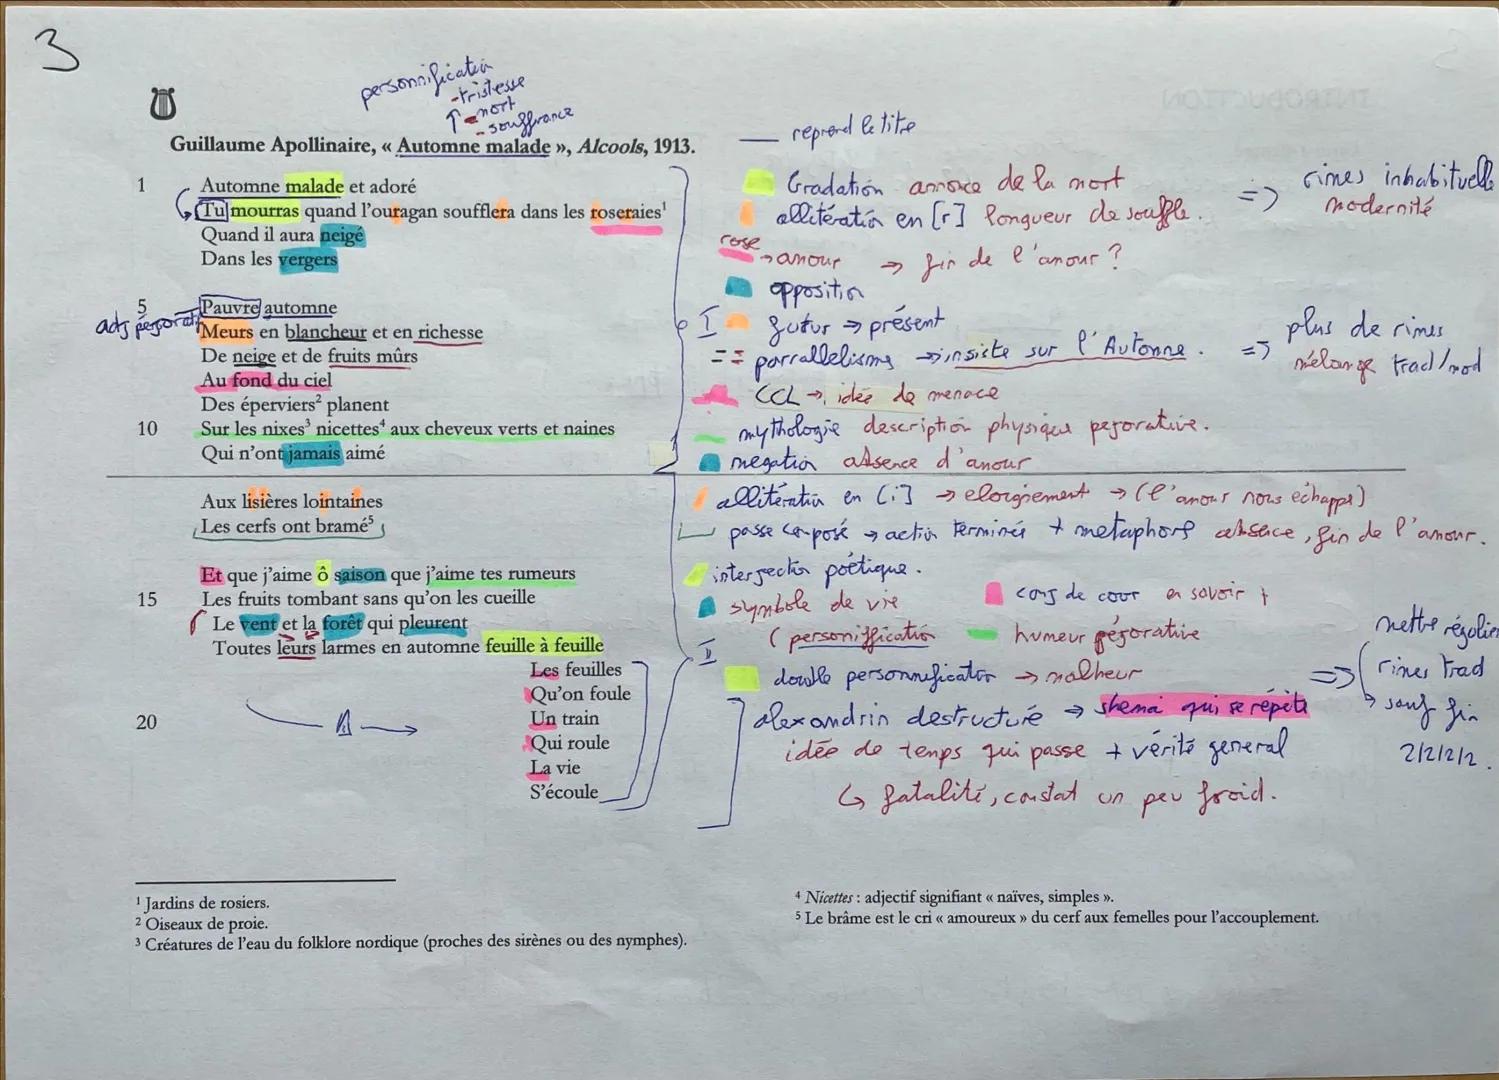 3
personnification
- tristesse
- mort
- souffrance
Guillaume Apollinaire, « Automne malade », Alcools, 1913.
1 Automne malade et adoré
Tu mourras quand l'ouragan soufflera dans les roseraies¹
Quand il aura neigé
Dans les vergers
5 Pauvre automne
adj péjoratif
Meurs en blancheur et en richesse
De neige et de fruits mûrs
Au fond du ciel
Des éperviers² planent
10 Sur les nixes³ nicettes⁴ aux cheveux verts et naines
Qui n'ont jamais aimé
Aux lisières lointaines
Les cerfs ont bramé⁵
Et que j'aime ô saison que j'aime tes rumeurs
15 Les fruits tombant sans qu'on les cueille
Le vent et la forêt qui pleurent
Toutes leurs larmes en automne feuille à feuille
Les feuilles
Qu'on foule
20 Un train
Qui roule
La vie
S'écoule
reprend le titre
Gradation annonce de la mort
allitération en [r] longueur de souffle.
=> rimes inhabituelle
modernité
rose → amour → fin de l'amour ?
opposition
I futur → présent
== parrallelisme → insiste sur l'Automne.
=> plus de rimes
mélange trad/mod
CCL → idée de menace
mythologie description physique pejorative.
negation absence d'amour
allitération en [i] → eloignement → (l'amour nous échappe)
passe composé → action terminée + metaphore absence, fin de l'amour.
interjection poétique.
symbole de vie
conj de coor en savoir +
(personiffication
humeur péjorative
double personnification → malheur
=> mettre régulier
rimes trad
→ sauf fin
2/2/2/2.
alexandrin destructuré → shema qui se répète
idée de temps qui passe + vérité general
↳ fatalité, constat un peu froid.
¹ Jardins de rosiers.
² Oiseaux de proie.
³ Créatures de l'eau du folklore nordique (proches des sirènes ou des nymphes).
⁴ Nicettes : adjectif signifiant « naïves, simples ».
⁵ Le brâme est le cri « amoureux » du cerf aux femelles pour l'accouplement.